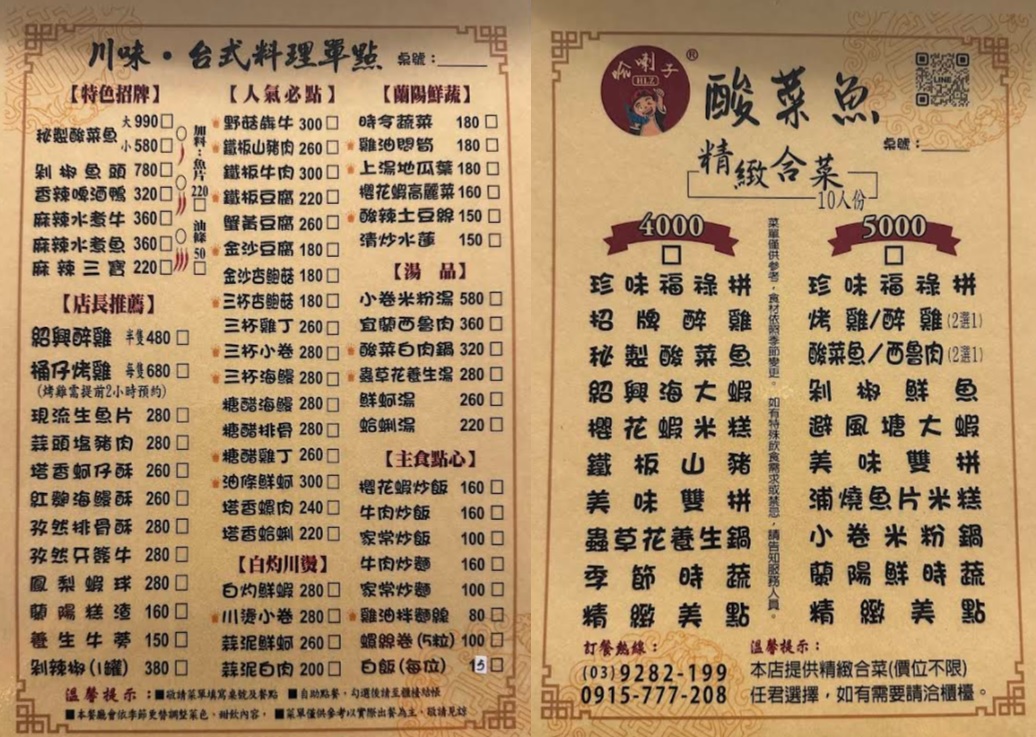 川味・台式料理單點 桌號：
【特色招牌】
秘製酸菜魚 大990 小580
剁椒魚頭 780
香辣啤酒鴨 320
麻辣水煮牛 360
麻辣水煮魚 360
麻辣三寶 220
加料：魚片 220 油條 50
【店長推薦】
紹興醉雞 半隻480
桶仔烤雞 每隻680
(烤雞需提前2小時預約)
現流生魚片 280
蒜頭塩豬肉 280
塔香蚵仔酥 260
紅麴海鰻酥 260
孜然排骨酥 280
孜然牙籤牛 280
鳳梨蝦球 280
蘭陽糕渣 160
養生牛蒡 150
剁辣椒(1罐) 380
【人氣必點】
野菇犇牛 300
鐵板山豬肉 260
鐵板牛肉 300
鐵板豆腐 220
蟹黃豆腐 260
金沙豆腐 180
金沙杏鮑菇 180
三杯杏鮑菇 180
三杯雞丁 260
三杯小卷 280
三杯海鰻 280
糖醋海鰻 280
糖醋排骨 280
糖醋雞丁 260
油條鮮蚵 300
塔香螺肉 240
塔香蛤蜊 220
【白灼川燙】
白灼鮮蝦 280
川燙小卷 280
蒜泥鮮蚵 260
蒜泥白肉 200
【蘭陽鮮蔬】
時令蔬菜 180
雞油悶筍 180
上湯地瓜葉 180
櫻花蝦高麗菜 160
酸辣土豆絲 150
清炒水蓮 150
【湯 品】
小卷米粉湯 580
宜蘭西魯肉 360
酸菜白肉鍋 320
蟲草花養生湯 280
鮮蚵湯 260
蛤蜊湯 220
【主食點心】
櫻花蝦炒飯 160
牛肉炒飯 160
家常炒飯 100
牛肉炒麵 160
家常炒麵 100
雞油拌麵線 80
螺絲卷(5粒) 100
白飯(每位) 15
溫馨提示：■敬請菜單填寫桌號及餐點 ■自助點餐，勾選後請至櫃檯結帳
■本餐廳會依季節更替調整菜色、甜飲內容， ■菜單僅供參考以實際出餐為主，敬請見諒
哈喇子
HLZ
®
LINE
酸菜魚
桌號：
精緻合菜
10人份
4000
珍味福祿拼
招牌醉雞
秘製酸菜魚
紹興海大蝦
櫻花蝦米糕
鐵板山豬
美味雙拼
蟲草花養生鍋
季節時蔬
精緻美點
菜單僅供參考，食材依照季節變更。如有特殊飲食需求或禁忌，請告知服務人員。
5000
珍味福祿拼
烤雞/醉雞(2選1)
酸菜魚/西魯肉(2選1)
剁椒鮮魚
避風塘大蝦
美味雙拼
浦燒魚片米糕
小卷米粉鍋
蘭陽鮮時蔬
精緻美點
訂餐熱線：
(03)9282-199
0915-777-208
溫馨提示：
本店提供精緻合菜(價位不限)
任君選擇，如有需要請洽櫃檯。